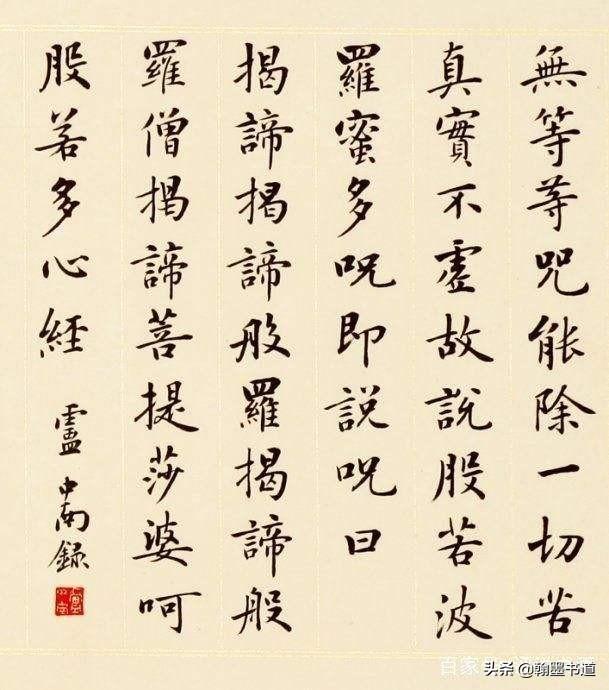 無等等咒能除一切苦
真實不虛故說股若波
羅蜜多呪即説呪曰
揭諦揭諦般羅揭諦般
羅僧揭諦菩提莎婆呵
股若多心經
盧中南録
头条 @翰墨书道